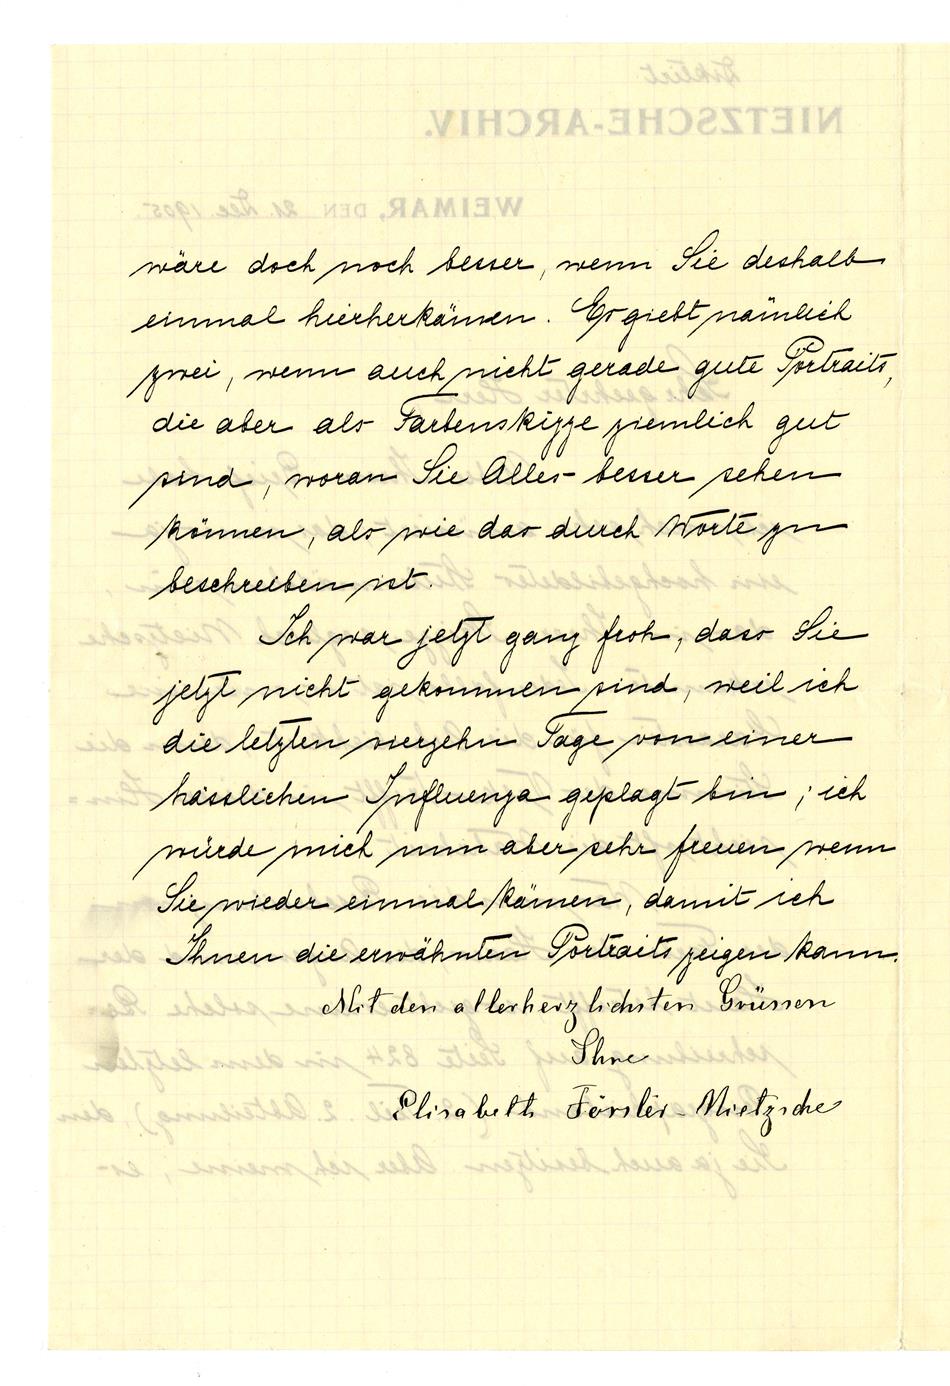 wäre doch noch besser, wenn Sie deshalb
einmal hierherkämen. Es giebt nämlich
zwei, wenn auch nicht gerade gute Portraits,
die aber als Farbenskizze ziemlich gut
sind, woran Sie Alles besser sehen
können, als wie das durch Worte zu
beschreiben ist.
Ich war jetzt ganz froh, dass Sie
jetzt nicht gekommen sind, weil ich
die letzten vierzehn Tage von einer
hässlichen Influenza geplagt bin; ich
würde mich nun aber sehr freuen wenn
Sie wieder einmal kämen, damit ich
Ihnen die erwähnten Portraits zeigen kann.
Mit den allerherzlichsten Grüssen
Ihre
Elisabeth Förster-Nietzsche
NIETZSCHE-ARCHIV.
WEIMAR, DEN 21. Dec. 1905.